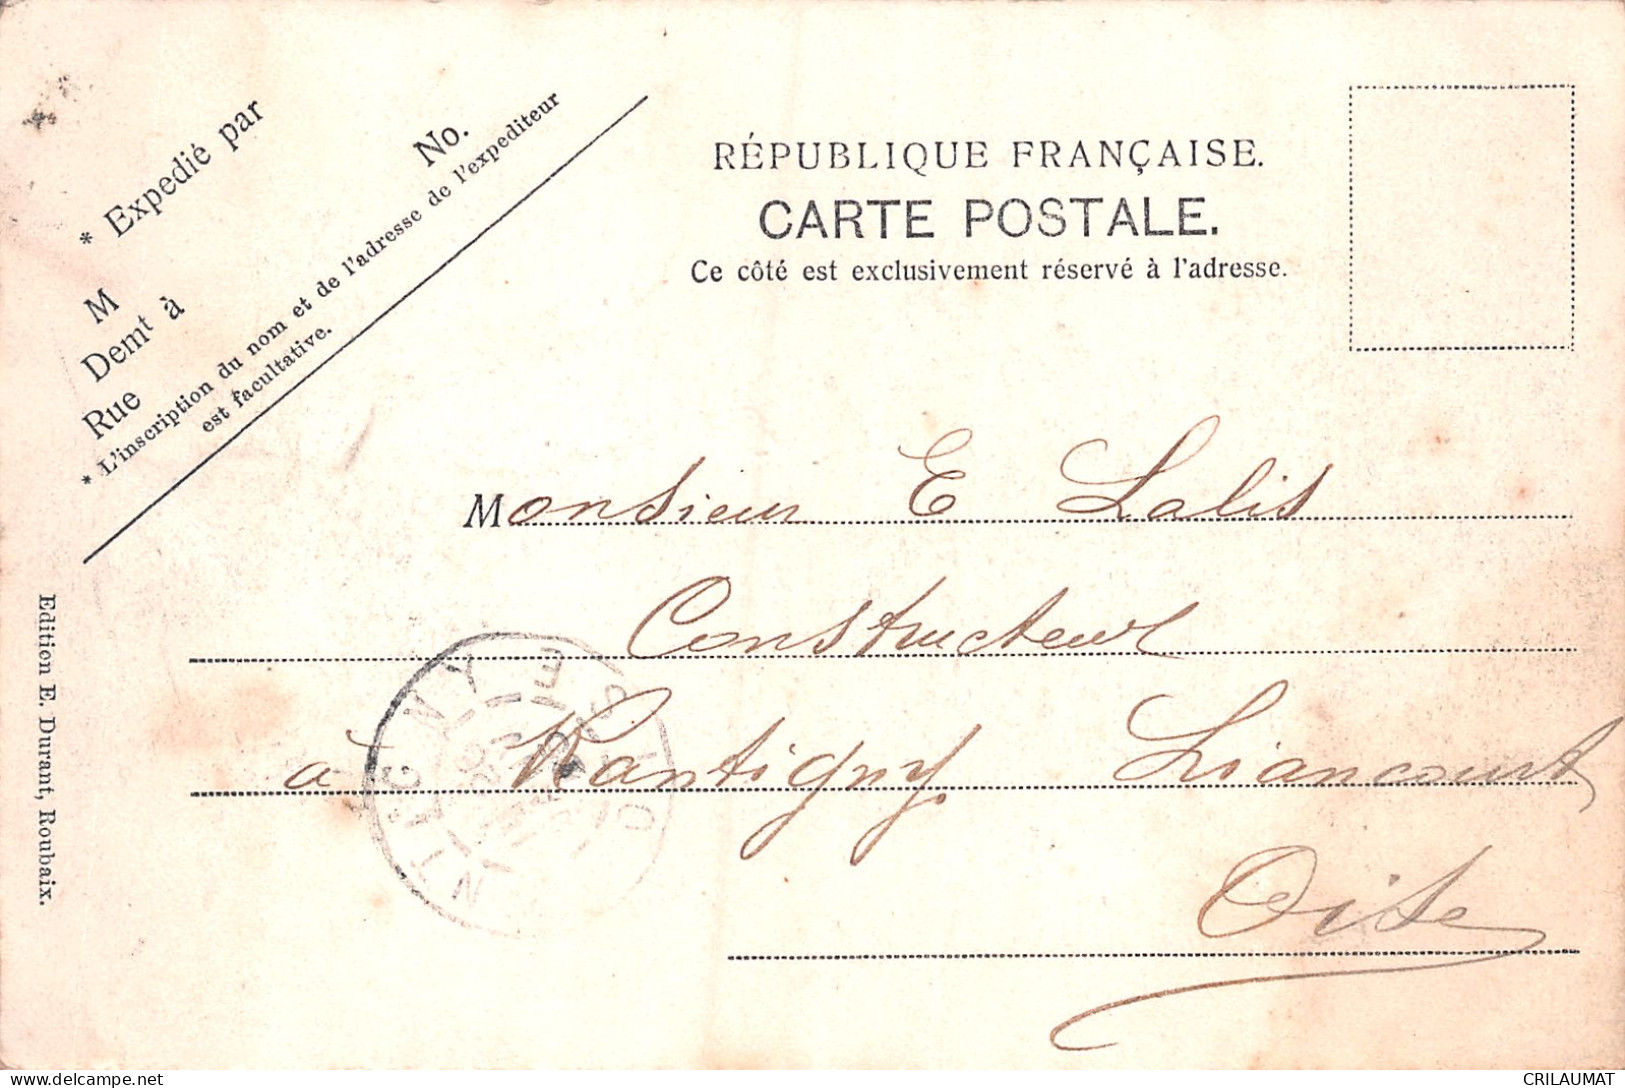 * Expedié par
No.
M
Demt à
Rue
* L'inscription du nom et de l'adresse de l'expediteur
est facultative.
RÉPUBLIQUE FRANÇAISE.
CARTE POSTALE.
Ce côté est exclusivement réservé à l'adresse.
Monsieur E Lalis
Constructeur
à Rantigny Liancourt
Oise
NTIGNY
OISE
Edition E. Durant, Roubaix.
delcampe.net
CRILAUMAT